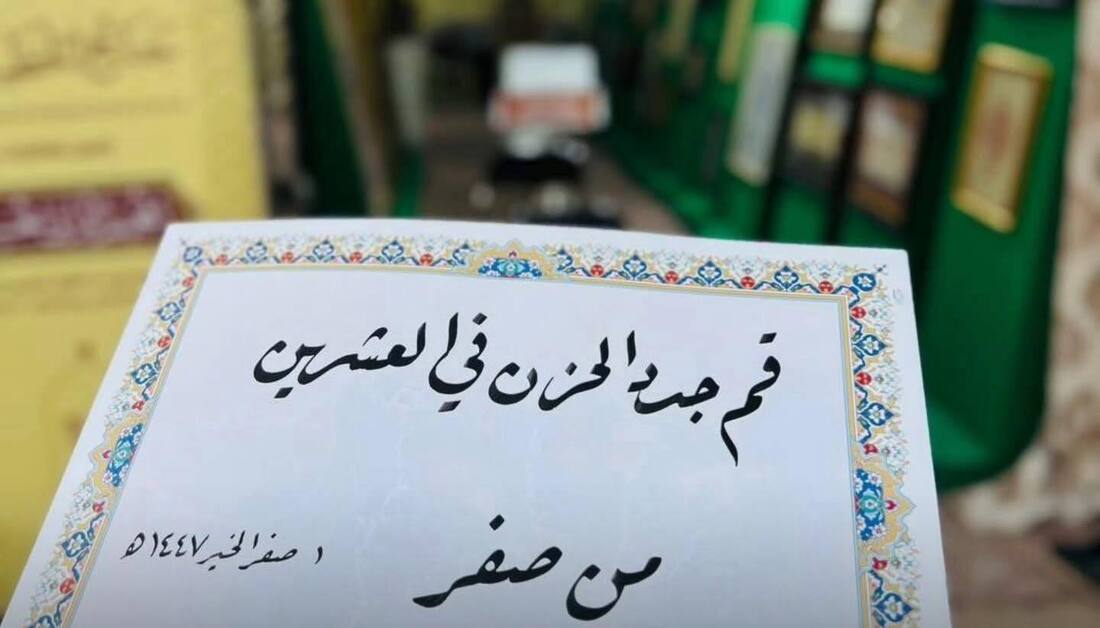 قم جدد الحزن في العشرين
من صفر
١ صفر الخير ١٤٤٧ه‍